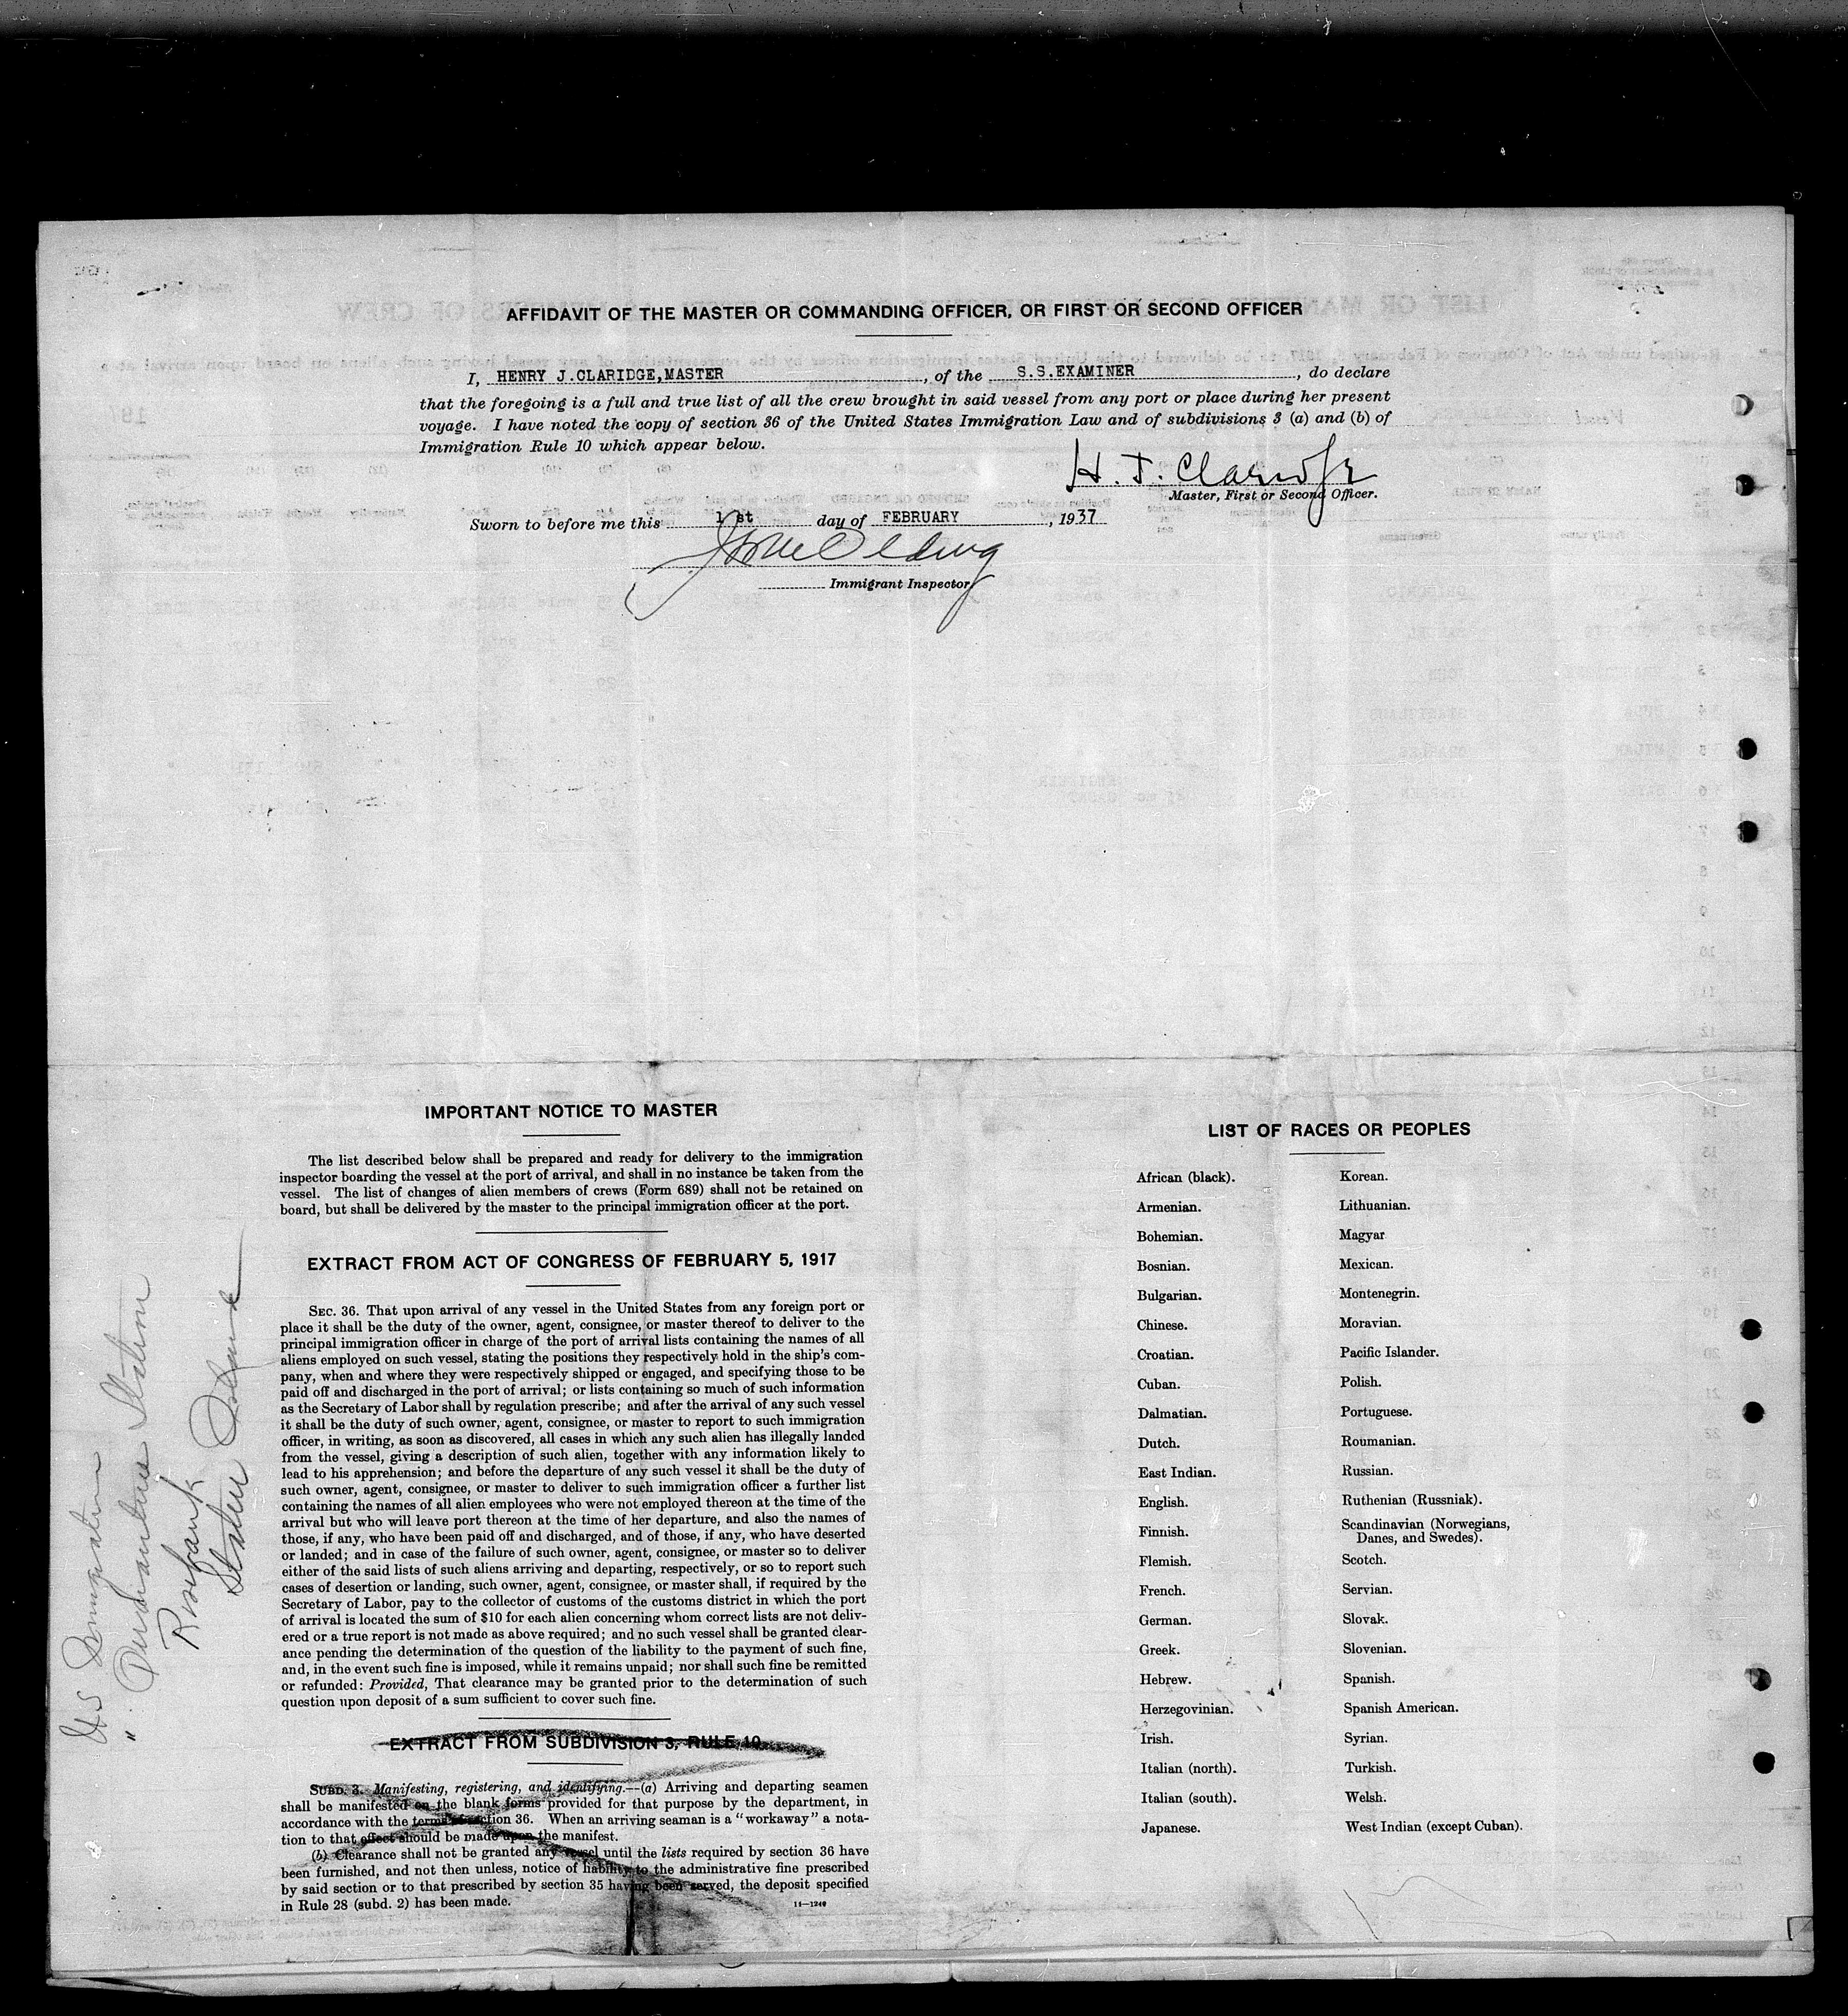 AFFIDAVIT OF THE MASTER OR COMMANDING OFFICER, OR FIRST OR SECOND OFFICER
I, HENRY J.CLARIDGE,MASTER, of the S.S.EXAMINER, do declare
that the foregoing is a full and true list of all the crew brought in said vessel from any port or place during her present
voyage. I have noted the copy of section 36 of the United States Immigration Law and of subdivisions 3 (a) and (b) of
Immigration Rule 10 which appear below.
H. J. Claridge
Master, First or Second Officer.
Sworn to before me this 1 st day of FEBRUARY, 1937
Immigrant Inspector
IMPORTANT NOTICE TO MASTER
The list described below shall be prepared and ready for delivery to the immigration
inspector boarding the vessel at the port of arrival, and shall in no instance be taken from the
vessel. The list of changes of alien members of crews (Form 689) shall not be retained on
board, but shall be delivered by the master to the principal immigration officer at the port.
EXTRACT FROM ACT OF CONGRESS OF FEBRUARY 5, 1917
SEC. 36. That upon arrival of any vessel in the United States from any foreign port or
place it shall be the duty of the owner, agent, consignee, or master thereof to deliver to the
principal immigration officer in charge of the port of arrival lists containing the names of all
aliens employed on such vessel, stating the positions they respectively hold in the ship's com-
pany, when and where they were respectively shipped or engaged, and specifying those to be
paid off and discharged in the port of arrival; or lists containing so much of such information
as the Secretary of Labor shall by regulation prescribe; and after the arrival of any such vessel
it shall be the duty of such owner, agent, consignee, or master to report to such immigration
officer, in writing, as soon as discovered, all cases in which any such alien has illegally landed
from the vessel, giving a description of such alien, together with any information likely to
lead to his apprehension; and before the departure of any such vessel it shall be the duty of
such owner, agent, consignee, or master to deliver to such immigration officer a further list
containing the names of all alien employees who were not employed thereon at the time of the
arrival but who will leave port thereon at the time of her departure, and also the names of
those, if any, who have been paid off and discharged, and of those, if any, who have deserted
or landed; and in case of the failure of such owner, agent, consignee, or master so to deliver
either of the said lists of such aliens arriving and departing, respectively, or so to report such
cases of desertion or landing, such owner, agent, consignee, or master shall, if required by the
Secretary of Labor, pay to the collector of customs of the customs district in which the port
of arrival is located the sum of $10 for each alien concerning whom correct lists are not deliv-
ered or a true report is not made as above required; and no such vessel shall be granted clear-
ance pending the determination of the question of the liability to the payment of such fine,
and, in the event such fine is imposed, while it remains unpaid; nor shall such fine be remitted
or refunded: Provided, That clearance may be granted prior to the determination of such
question upon deposit of a sum sufficient to cover such fine.
EXTRACT FROM SUBDIVISION 3, RULE 10
SUBD. 3. Manifesting, registering, and identifying.--(a) Arriving and departing seamen
shall be manifested on the blank forms provided for that purpose by the department, in
accordance with the terms of section 36. When an arriving seaman is a "workaway" a nota-
tion to that effect should be made upon the manifest.
(b) Clearance shall not be granted any vessel until the lists required by section 36 have
been furnished, and not then unless, notice of liability to the administrative fine prescribed
by said section or to that prescribed by section 35 having been served, the deposit specified
in Rule 28 (subd. 2) has been made.
14—1240
LIST OF RACES OR PEOPLES
African (black).
Armenian.
Bohemian.
Bosnian.
Bulgarian.
Chinese.
Croatian.
Cuban.
Dalmatian.
Dutch.
East Indian.
English.
Finnish.
Flemish.
French.
German.
Greek.
Hebrew.
Herzegovinian.
Irish.
Italian (north).
Italian (south).
Japanese.
Korean.
Lithuanian.
Magyar
Mexican.
Montenegrin.
Moravian.
Pacific Islander.
Polish.
Portuguese.
Roumanian.
Russian.
Ruthenian (Russniak).
Scandinavian (Norwegians,
Danes, and Swedes).
Scotch.
Servian.
Slovak.
Slovenian.
Spanish.
Spanish American.
Syrian.
Turkish.
Welsh.
West Indian (except Cuban).
US Immigration
" Quarantine Station
Rosebank
Staten Island